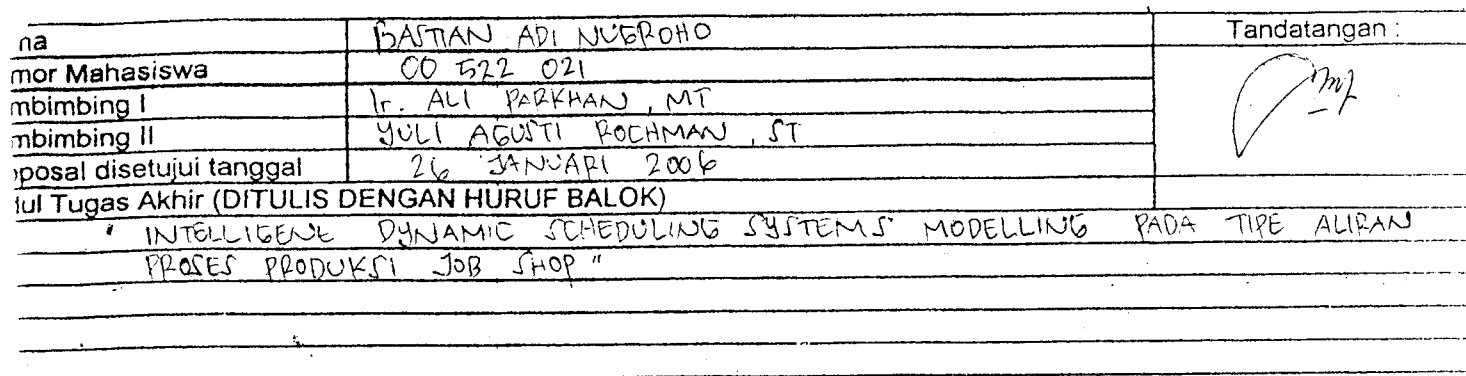 na BASTIAN ADI NUGROHO Tandatangan :
mor Mahasiswa 00 522 021
mbimbing I Ir. ALI PARKHAN, MT
mbimbing II YULI AGUSTI ROCHMAN, ST
posal disetujui tanggal 26 JANUARI 2006
lul Tugas Akhir (DITULIS DENGAN HURUF BALOK)
" INTELLIGENE DYNAMIC SCHEDULING SYSTEMS MODELLING PADA TIPE ALIRAN
PROSES PRODUKSI JOB SHOP "